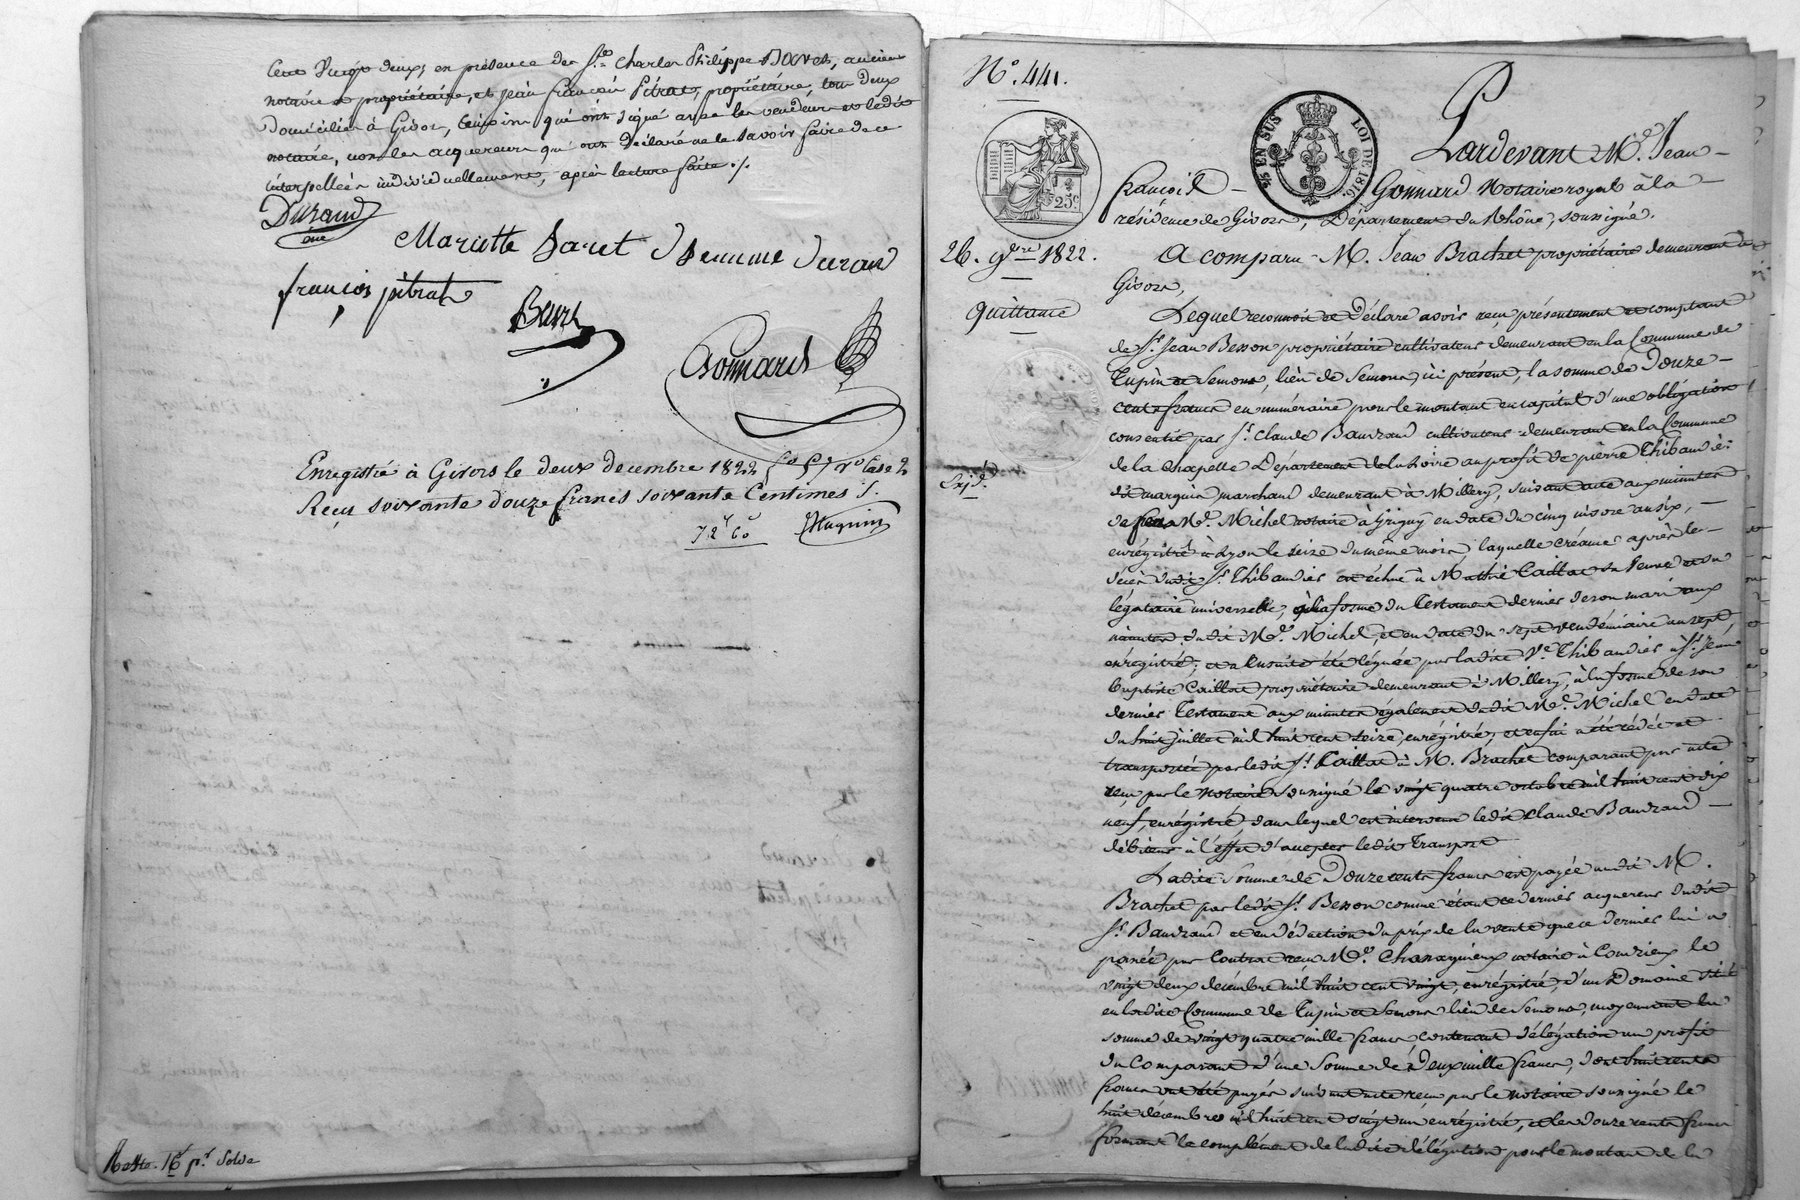 Cent vingt deux, en présence des Srs Charles Philippe Baret, ancien
notaire et propriétaire, et Jean François Pitrat, propriétaire, tous deux
domiciliés à Givors, témoins qui ont signé avec les vendeurs et ledit
notaire, non les acquereurs qui ont déclaré ne le savoir faire de ce
interpellés individuellement, après lecture faite ./.
Durand
ainé
Mariette Baret femme durand
françois pitrat
Baret
Gonnard
Enregistré à Givors le deux decembre 1822 fo 57 vo Case 2
Reçu soixante douze francs soixante Centimes
72f 60c Huguin
Reste. 16f pr solde
No. 441.
25c
3/5 EN SUS LOI DE 1816.
Pardevant Me. Jean
françois Gonnard Notaire royal à la
résidence de Givors, Département du Rhône, soussigné.
26. 9bre 1822.
A comparu M. Jean Brachet propriétaire demeurant à
Givors,
quittance
Lequel reconnoit et déclare avoir reçu présentement et comptant
de Sr. Jean Besson propriétaire cultivateur demeurant en la Commune de
Tupin et Semons, lieu de Semons, ici présent, la somme de Douze
cents francs en numéraire pour le montant en capital d'une obligation
consentie par Sr. Claude Baudrand cultivateur demeurant en la Commune
de la Chapelle Département de la Loire au profit de pierre Thibaudier
dit marquis marchand demeurant à Millery, suivant acte aux minutes
Expd.
de feu Me. Michel notaire à Grigny en date du cinq nivose an six,
enrégistré à Lyon le seize du même mois, laquelle créance après le
décès dudit Sr. Thibaudier est échue à Mathie Caillat sa Veuve et son
légataire universelle, à la forme du Testament dernier de son mari aux
minutes dudit Me. Michel, et en date du sept vendémiaire an sept,
enrégistré; et a ensuite été léguée par ladite Ve. Thibaudier à Sr. Jean
Baptiste Caillat propriétaire demeurant à Millery, à la forme de son
dernier Testament aux minutes également dudit Me. Michel en date
du huit juillet mil huit cent seize, enrégistré, et enfin a été cédée et
transportée par ledit Sr. Caillat à M. Brachet comparant par acte
reçu par le notaire soussigné le vingt quatre octobre mil huit cent dix
neuf, enrégistré, dans lequel est intervenu ledit Claude Baudrand
débiteur à l'effet d'accepter ledit Transport
Ladite somme de Douze cents francs est payée audit M.
Brachet par ledit Sr. Besson comme étant ce dernier acquereur dudit
Sr. Baudrand et en déduction du prix de la vente que ce dernier lui a
passée par Contrat reçu Me. Chavagnieux notaire à Condrieux le
vingt deux décembre mil huit cent vingt, enrégistré, d'un Domaine situé
en ladite Commune de Tupin et Semons lieu de Semons, moyennant la
somme de vingt quatre mille francs contenant délégation au profit
du Comparant d'une Somme de Deux mille francs, dont huit cents
francs ont été payés suivant acte reçu par le notaire soussigné le
huit décembre mil huit cent vingt un, enrégistré, et les douze cents francs
formant le complément de ladite délégation pour le montant de la